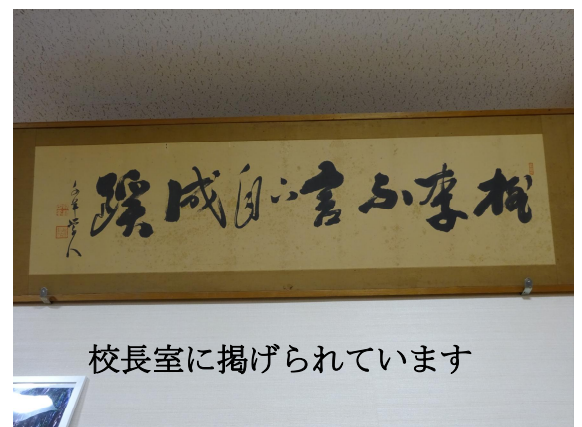 桃李不言下自成蹊
校長室に掲げられています